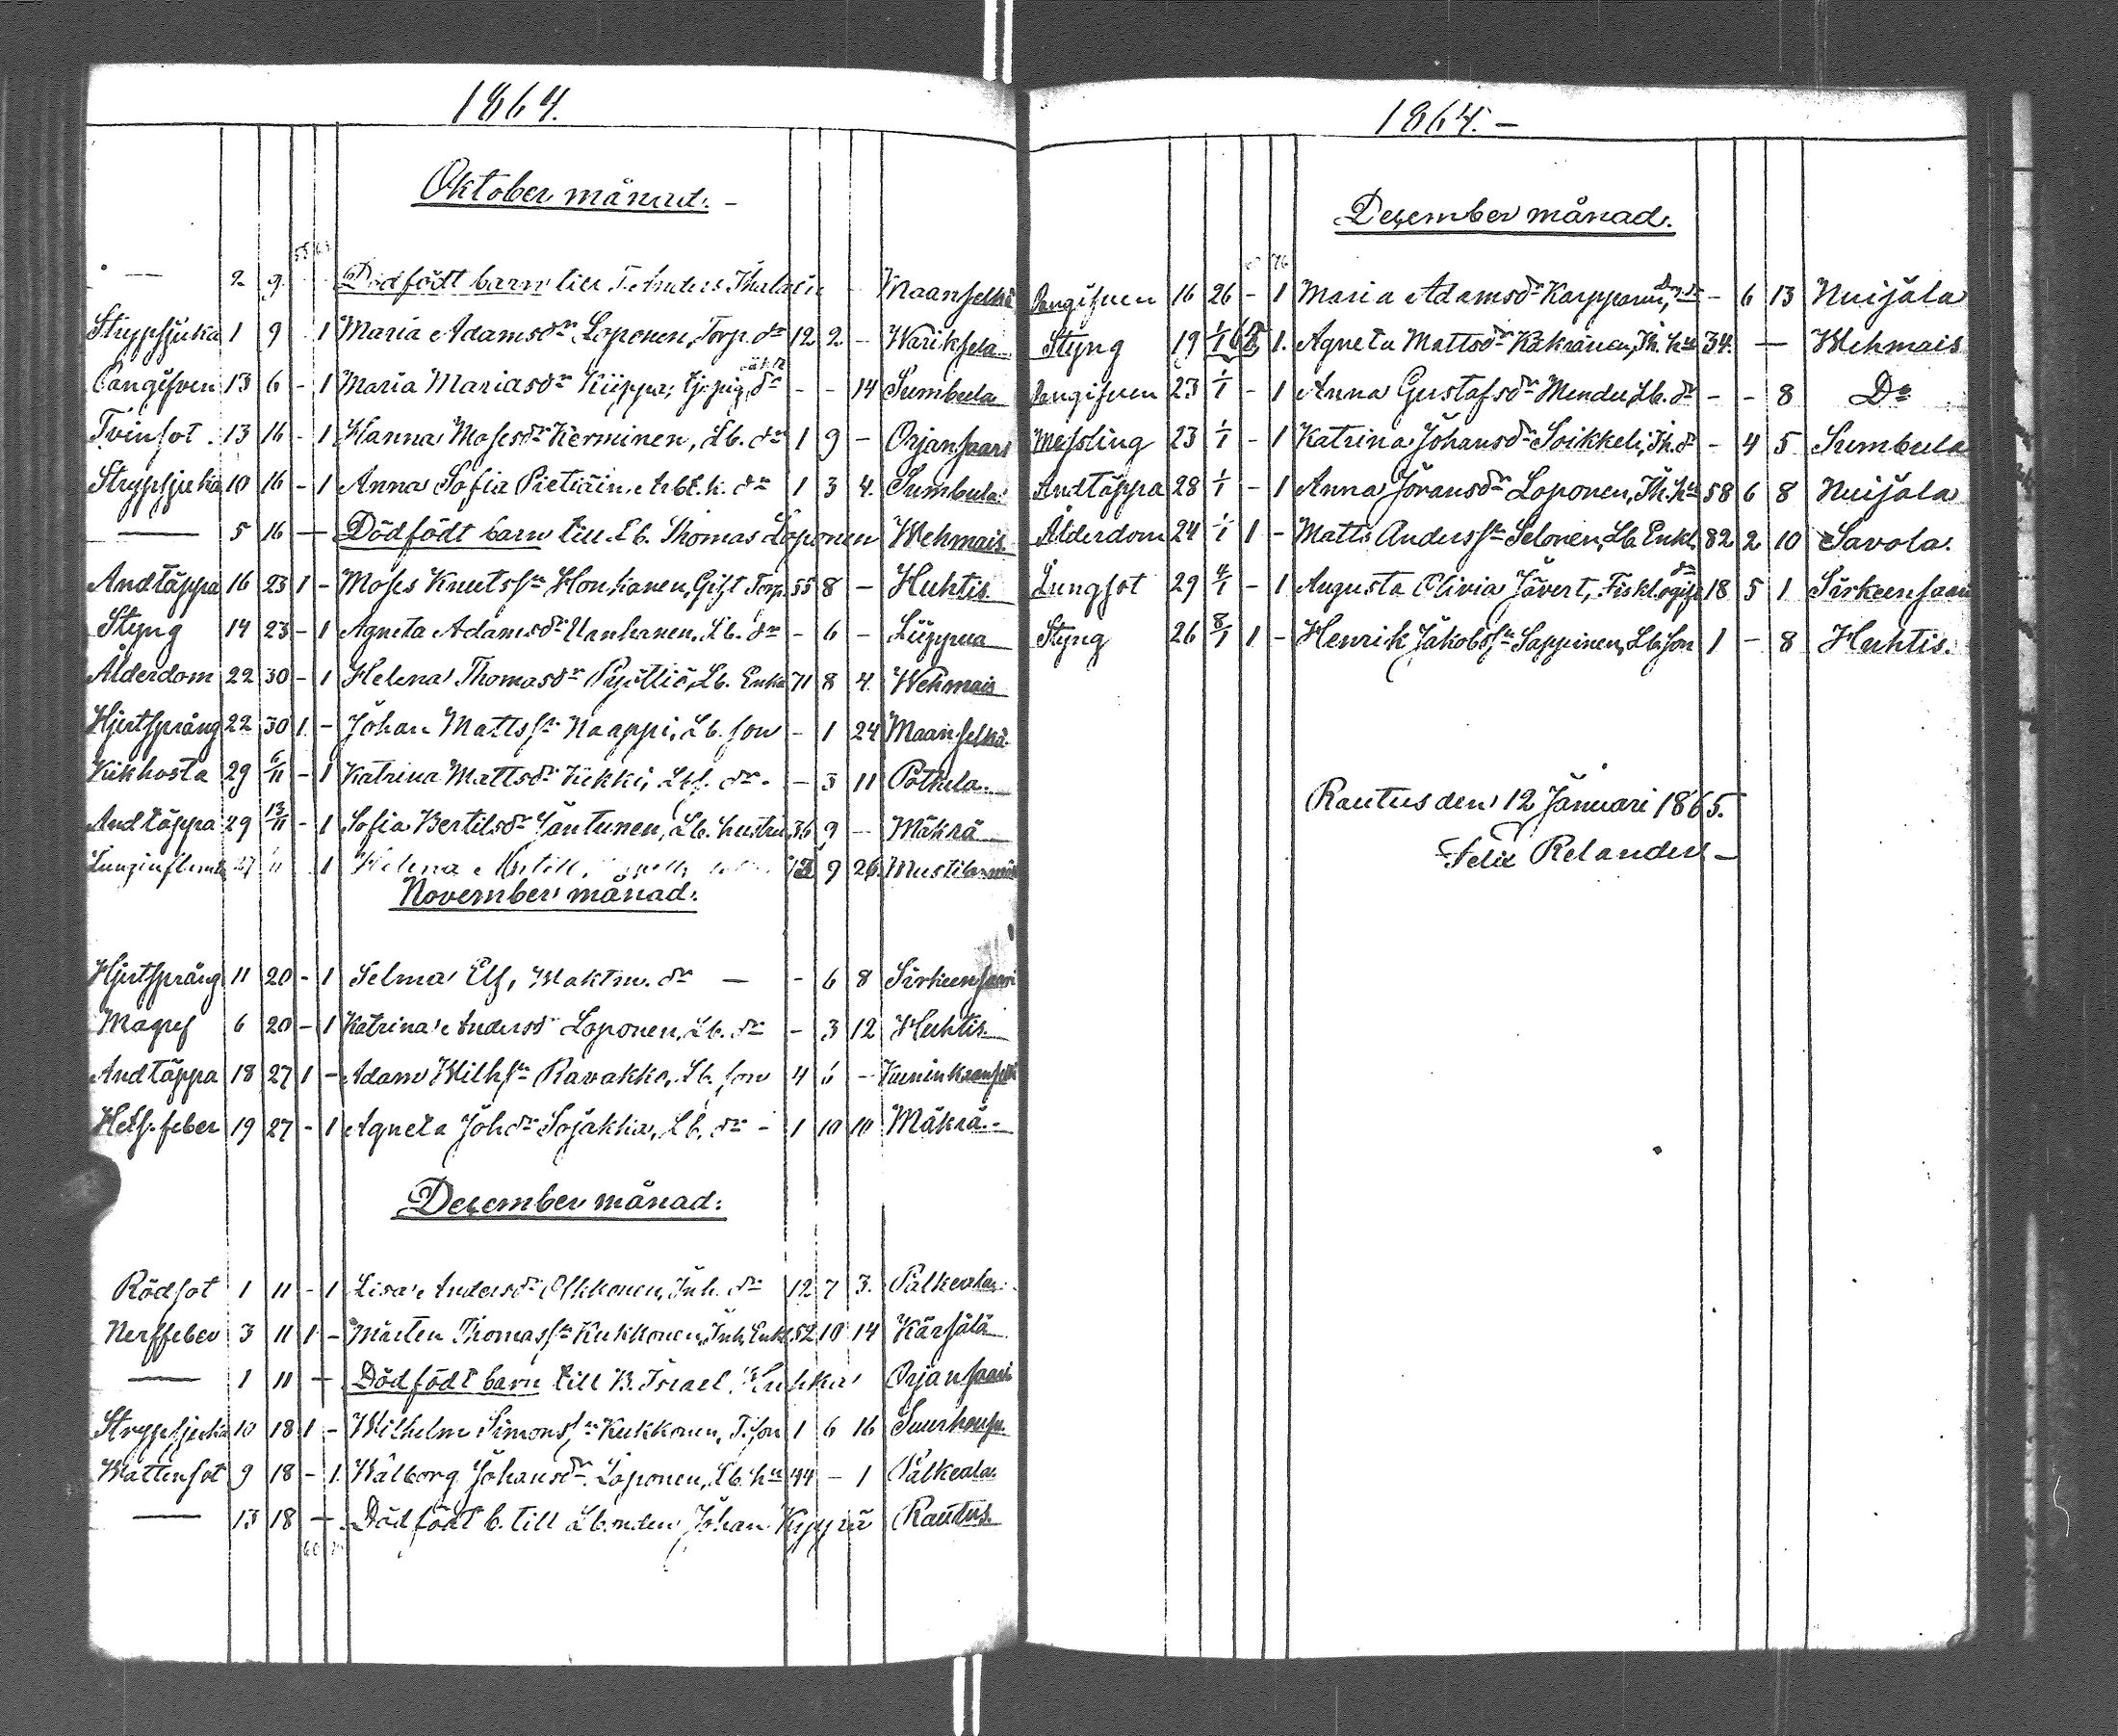 1864.
Oktober månad. -
— 2 9 Dödfödt barn till T. Anders Ihalain - Maanselkä
Strypsjuka 1 9 1 Maria Adamsdr Loponen, Torp. dr 12 2 - Wariksela
Oangifven 13 6 - 1 Maria Mariasdr Kiippa, dr - - 14 Sumbula
Tvinsot 13 16 - 1 Hanna Mosesdr Kerminen, Lb. dr 1 9 - Orjansaari
Strypsjuka 10 16 - 1 Anna Sofia Pietiäin. Arbt. k. dr 1 3 4. Sumbula
— 5 16 — Dödfödt barn till Lb. Thomas Loponen Wehmais
Andtäppa 16 23 1 - Moses Knutssn Honkanen, Gift Torp. 55 8 - Huhtis
Styng 14 23 - 1 Agneta Adamsdr Vanhanen, Lb. dr - 6 - Liippua
Ålderdom 22 30 - 1 Helena Thomasdr Pyöttiö, Lb. Enka 71 8 4. Wehmais
Hjertsprång 22 30 1 - Johan Mattssn Naappi, Lb. son - 1 24 Maanselkä.
Kikhosta 29 6/11 - 1 Katrina Mattsdr Kekki, dr. - 3 11 Potkela.
Andtäppa 29 13/11 - 1 Sofia Bertilsdr Jäntunen, Lb. hustru 36 9 - Mäkrä
27 11 1 Helena 9 26. Mustila
November månad.
Hjertsprång 11 20 - 1 Selma Elf, Waktm. dr — - 6 8 Sirkeensaari
Magref 6 20 - 1 Katrina Andersdr Loponen, Lb. dr - 3 12 Huhtis.
Andtäppa 18 27 1 - Adam Wilhsn Ravakka, Lb. son 4 6 -
Hets. feber 19 27 - 1 Agneta Johdr Sojakka, Lb. dr - 1 10 10 Mäkrä.-
December månad.
Rödsot 1 11 - 1 Lisa Andersdr Olkkonen, Inh. dr 12 7 3. Palkeala.
Nerffeber 3 11 1 - Mårten Thomassn Kukkonen, Inh. Enkl. 52 10 14 Kärsälä
— 1 11 — Dödfödt barn till B. Israel Orjansaari
Strypsjuka 10 18 1 - Wilhelm Simonssn Kukkonen, T. son 1 6 16
Wattensot 9 18 - 1. Walborg Johansdr Loponen, Lb. hu 44 - 1 Palkeala.
— 13 18 — Dödfödt b. till Lbonden Johan Rautus.
1864. -
December månad.
Oangifven 16 26 - 1 Maria Adamsdr Karppanen, - 6 13 Nuijala
Styng 19 1/1 1. Agneta Mattsdr Käkränen, Ih. hu 34. — Wehmais
Oangifven 23 1/1 - 1 Anna Gustafsdr Mendu, Lb. dr - - 8 Do
Messling 23 1/1 - 1 Katrina Johansdr Soikkeli, Ih. dr - 4 5 Sumbula
Andtäppa 28 1/1 - 1 Anna Jöransdr Loponen, Ih. hu 58 6 8 Nuijala
Ålderdom 24 1/1 1 - Matts Anderssn Selonen, Lb. Enkl. 82 2 10 Savola.
Lungsot 29 4/1 - 1 Augusta Olivia Jävert, Fiskl. ogift dr 18 5 1 Sirkeensaari
Styng 26 8/1 1 - Henrik Jakobssn Sappinen, Lb. son 1 - 8 Huhtis.
Rautus den 12 Januari 1865.
Felix Relander -